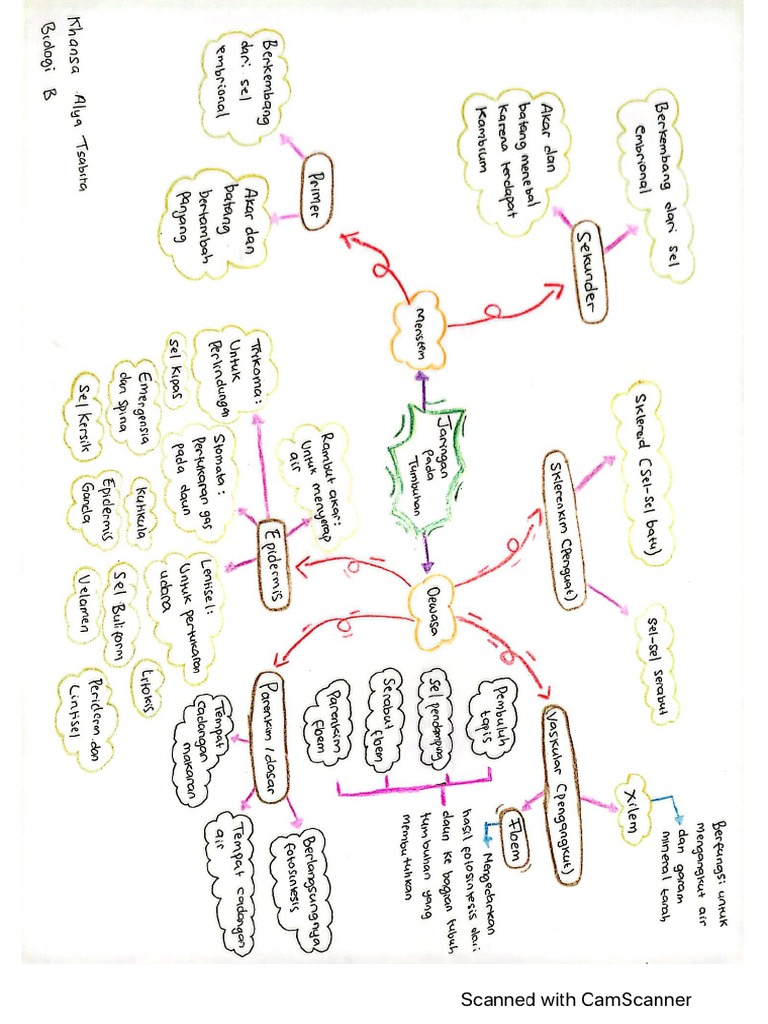 Khansa Alya Tsabita
Biologi B
Jaringan
pada
Tumbuhan
Meristem
Primer
Berkembang
dari sel
embrional
Akar dan
batang
bertambah
panjang
Sekunder
Berkembang dari sel
embrional
Akar dan
batang menebal
karena terdapat
Kambium
Dewasa
Epidermis
Rambut akar:
Untuk menyerap
air
Trikoma:
Untuk
Perlindungan
Stomata:
Pertukaran gas
pada daun
Lentisel:
Untuk pertukaran
udara
Sel Kipas
Emergensia
dan spina
Sel Kersik
Kutikula
Epidermis
Ganda
Sel Buliform
Velamen
Litokis
Periderm dan
Lintisel
Parenkim / dasar
Tempat
cadangan
makanan
Tempat cadangan
air
Berlangsungnya
fotosintesis
Sklerenkim (Penguat)
Skleroid (Sel-sel batu)
Sel-sel serabut
Vaskular (Pengangkut)
Xilem
Berfungsi untuk
mengangkut air
dan garam
mineral tanah
Floem
Mengedarkan
hasil fotosintesis dari
daun ke bagian tubuh
tumbuhan yang
membutuhkan
Pembuluh
tapis
Sel pendamping
Serabut
floem
Parenkim
floem
Scanned with CamScanner